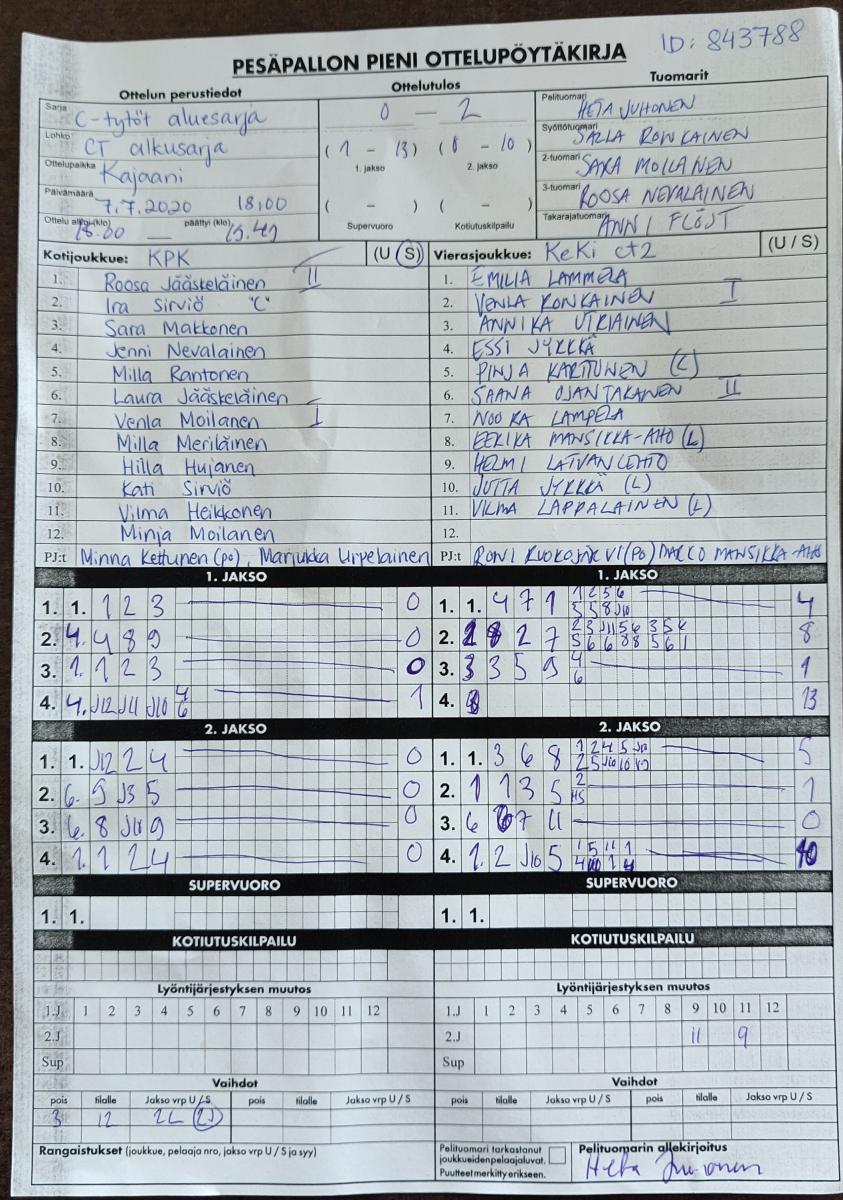 ID: 843788
PESÄPALLON PIENI OTTELUPÖYTÄKIRJA
Ottelun perustiedot
Ottelutulos
Tuomarit
Sarja C-tytöt aluesarja
0 — 2
Pelituomari HETA JUHONEN
Lohko CT alkusarja
(1 - 13) (0 - 10)
1. jakso 2. jakso
Syöttötuomari SALLA RONKAINEN
Ottelupaikka Kajaani
2-tuomari SAKA MOILANEN
Päivämäärä 7.7.2020 18:00
( - ) ( - )
Supervuoro Kotiutuskilpailu
3-tuomari ROOSA NEVALAINEN
Ottelu alkoi (klo) 18.00 — päättyi (klo) 19.49
Takarajatuomari ANNI
Kotijoukkue: KPK (U/S)
1. Roosa Jääskeläinen II
2. Ira Sirviö "C"
3. Sara Makkonen
4. Jenni Nevalainen
5. Milla Rantonen
6. Laura Jääskeläinen
7. Venla Moilanen I
8. Milla Meriläinen
9. Hilla Hujanen
10. Kati Sirviö
11. Vilma Heikkonen
12. Minja Moilanen
PJ:t Minna Kettunen (po), Marjukka Urpelainen
Vierasjoukkue: KeKi ct2 (U/S)
1. EMILIA LAMMELA
2. VENLA RONKAINEN I
3. ANNIKA UTRIAINEN
4. ESSI JYRKKÄ
5. PINJA KARTTUNEN (L)
6. SAANA OJANTAKANEN II
7. NOORA LAMPELA
8. EERIKA MANSIKKA-AHO (L)
9. HELMI LATVANLEHTO
10. JUTTA JYRKKÄ (L)
11. VILMA LAPPALAINEN (L)
12.
PJ:t RONI RUOKOJÄRVI (PO) MARCO MANSIKKA-AHO
1. JAKSO
1. 1. 1 2 3 0
2. 4. 4 8 9 0
3. 1. 1 2 3 0
4. 4. J12 J11 J10 4 6 1
1. JAKSO
1. 1. 4 7 1 1 2 5 6 4
5 5 8 J10
2. 2 7 2 3 J11 5 6 3 5 4 8
5 6 6 8 8 5 6 1
3. 3 3 5 9 4 1
6
4. 13
2. JAKSO
1. 1. J12 2 4 0
2. 6. 9 J3 5 0
3. 6. 8 J10 9 0
4. 1. 1 2 4 0
2. JAKSO
1. 1. 3 6 8 1 2 4 5 J10 5
2. 1 1 3 5 2 1
H5
3. 6 7 11 0
4. 1. 2 J10 5 1 5 11 1 10
SUPERVUORO
1. 1.
SUPERVUORO
1. 1.
KOTIUTUSKILPAILU
KOTIUTUSKILPAILU
Lyöntijärjestyksen muutos
1.J 1 2 3 4 5 6 7 8 9 10 11 12
2.J
Sup
Lyöntijärjestyksen muutos
1.J 1 2 3 4 5 6 7 8 9 10 11 12
2.J 11 9
Sup
Vaihdot
pois tilalle Jakso vrp U / S pois tilalle Jakso vrp U / S
3 12 2L (2J)
Vaihdot
pois tilalle Jakso vrp U / S pois tilalle Jakso vrp U / S
Rangaistukset (joukkue, pelaaja nro, jakso vrp U / S ja syy)
Pelituomari tarkastanut
joukkueidenpelaajaluvat.
Puutteet merkitty erikseen.
Pelituomarin allekirjoitus
Heta Juhonen